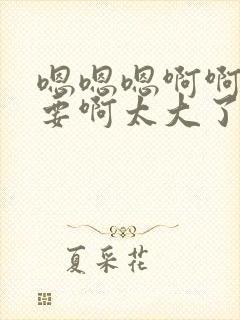 嗯嗯嗯啊啊
要啊太大了
夏采花